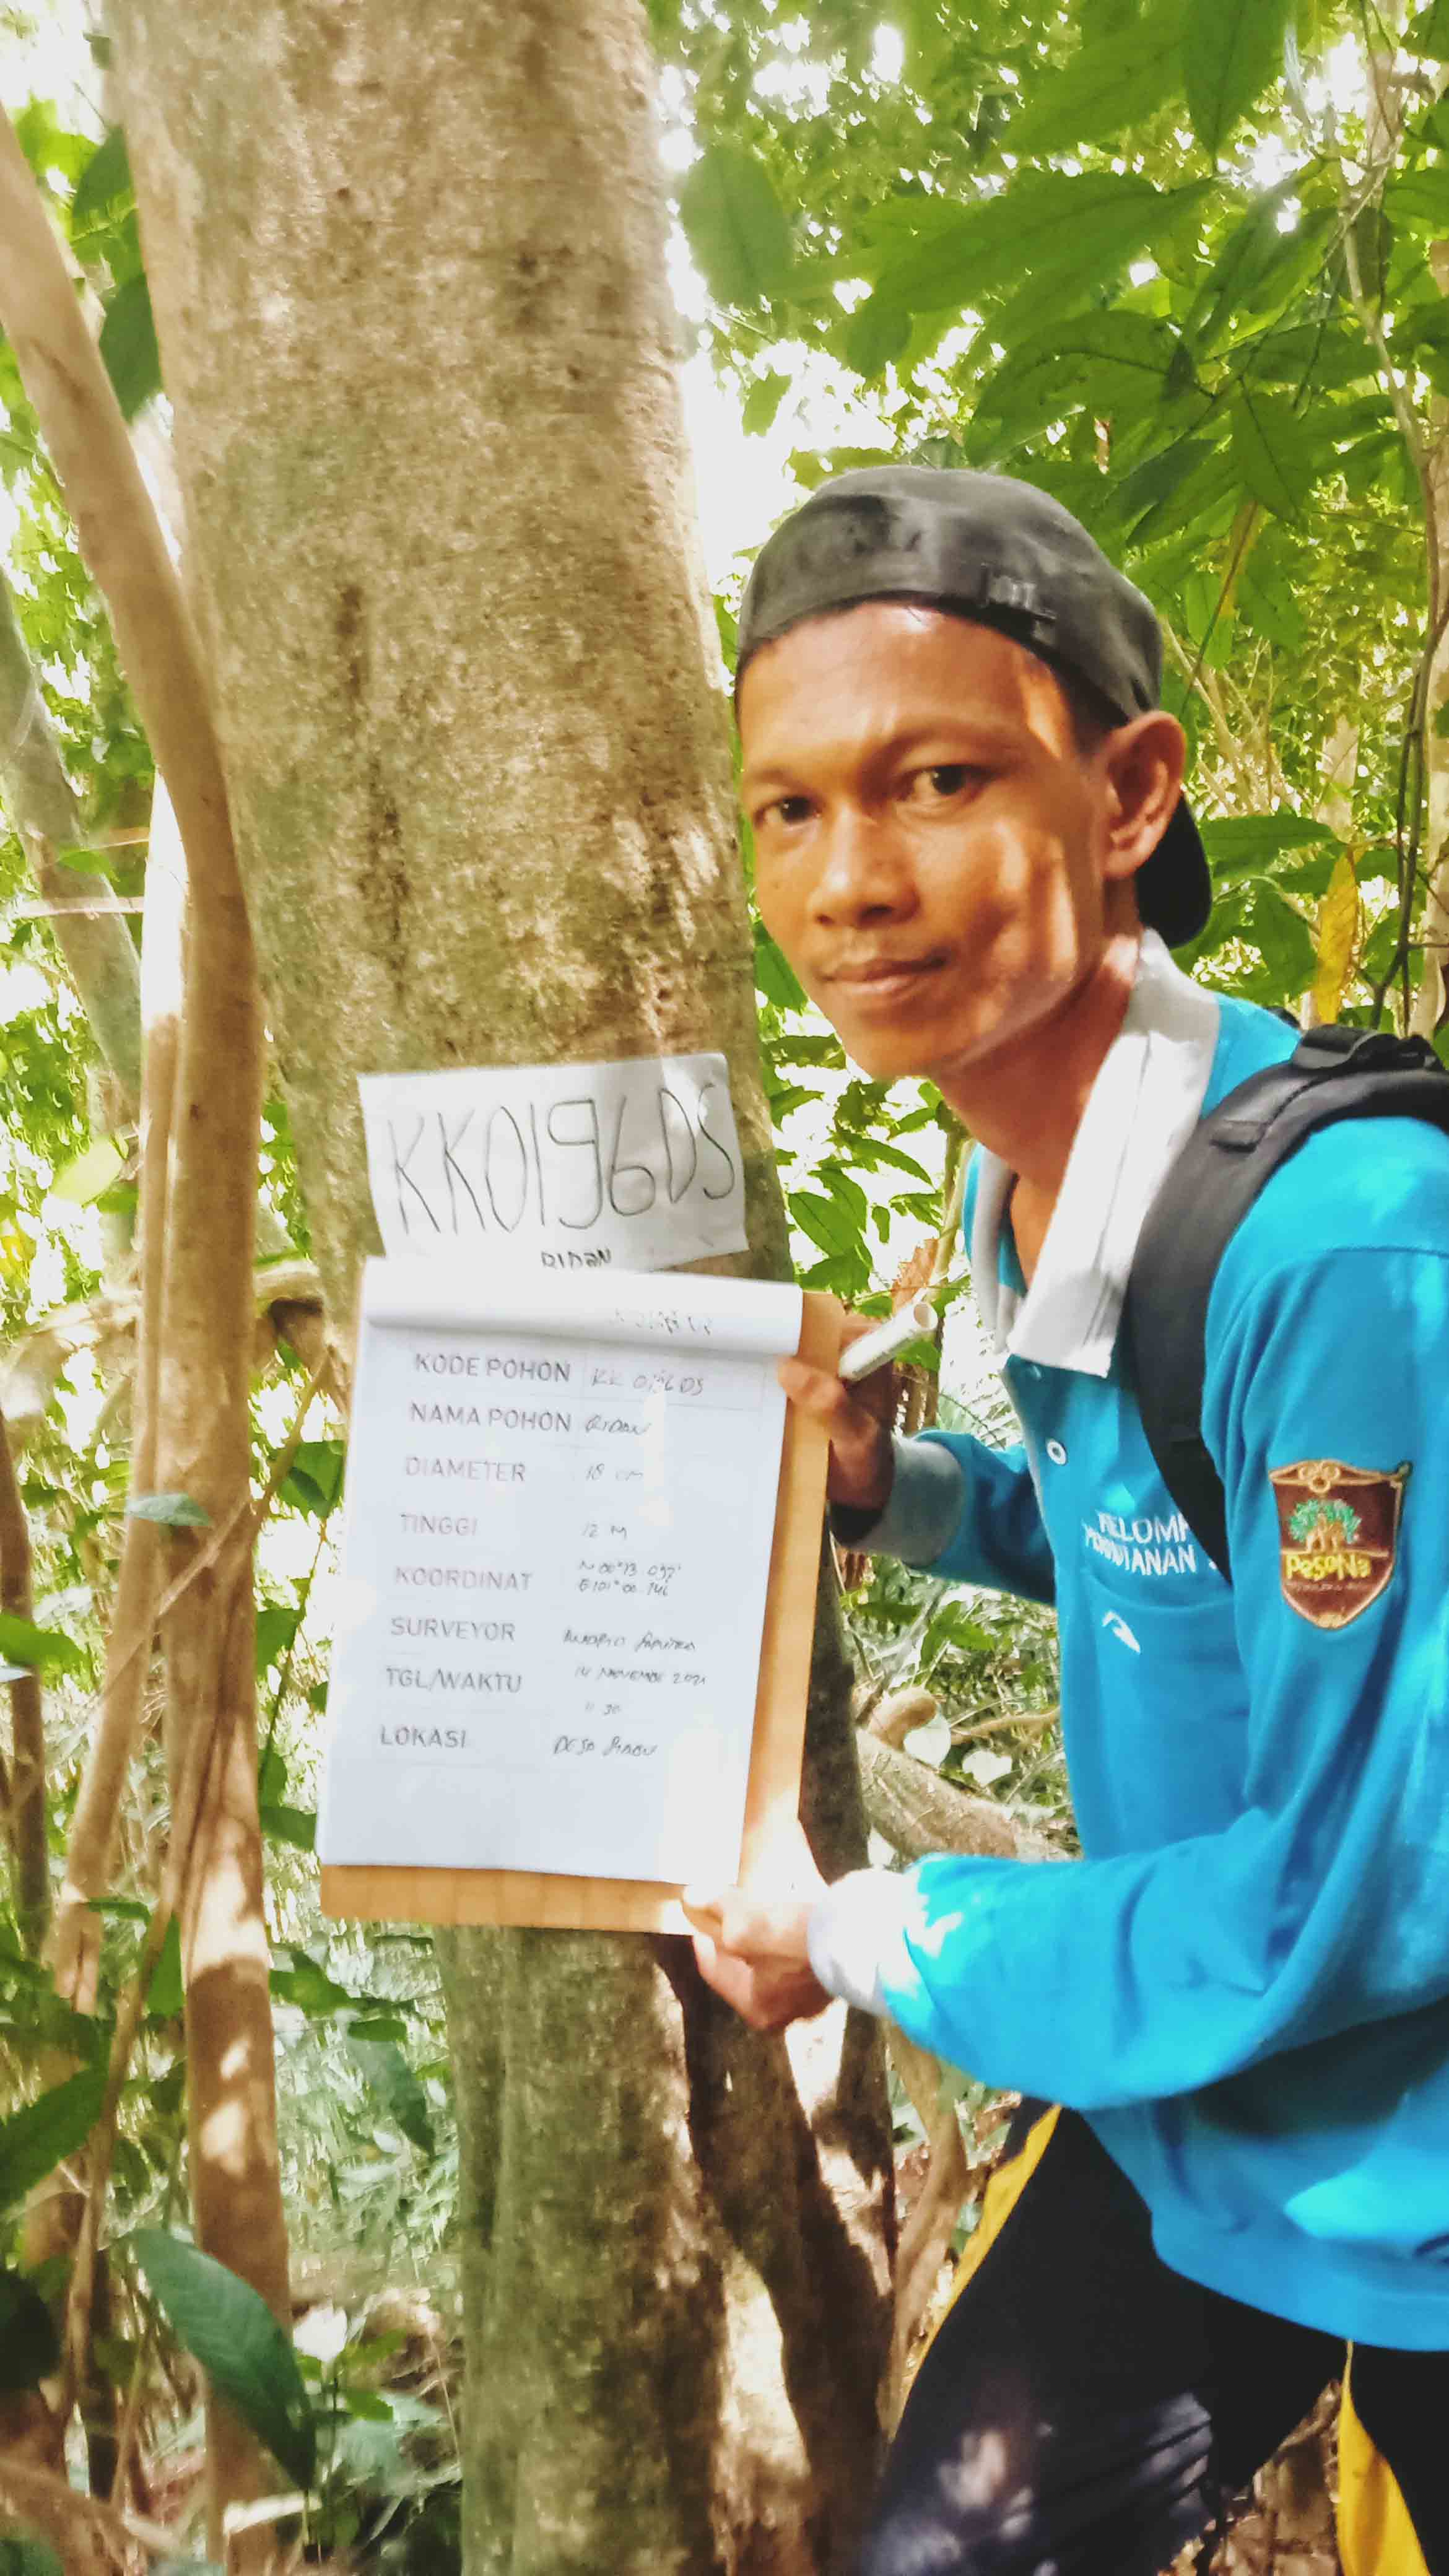 KK0196DS
RIDAN
KODE POHON KK 0196 DS
NAMA POHON RIDAN
DIAMETER 18 cm
TINGGI 12 M
KOORDINAT N 00°13.097'
E101°00.
SURVEYOR
TGL/WAKTU 14 NOVEMBE 2021
11 30
LOKASI DESA
KELOMP
PesoNa